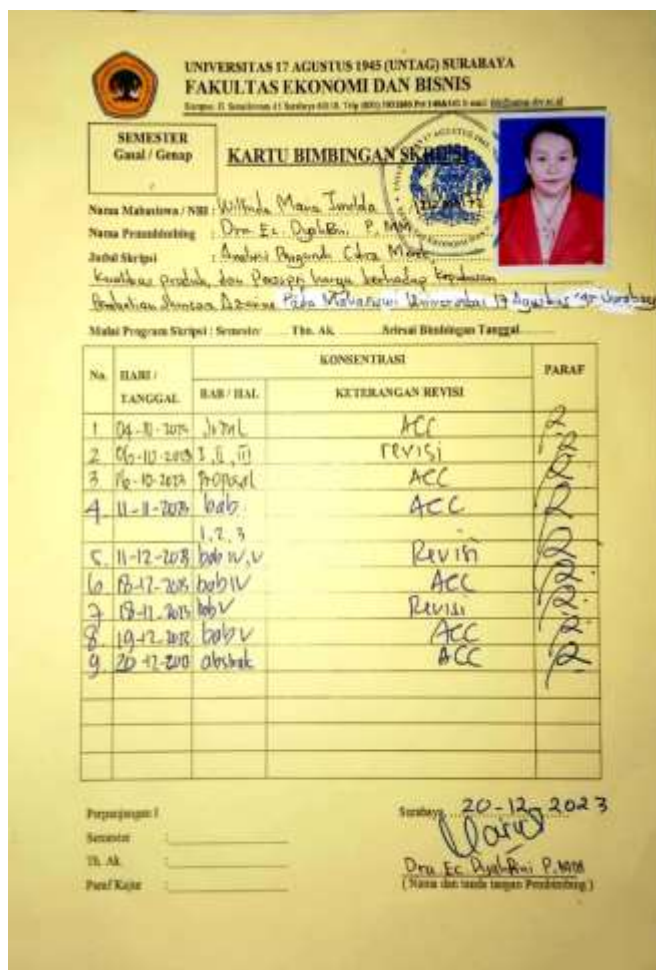 UNIVERSITAS 17 AGUSTUS 1945 (UNTAG) SURABAYA
FAKULTAS EKONOMI DAN BISNIS
SEMESTER
Gasal / Genap
KARTU BIMBINGAN SKRIPSI
Nama Mahasiswa / NBI : Wilfrida Maria Imelda
Nama Pembimbing : Dra Ec. Dyah Rini P, MM
Judul Skripsi : Analisis Pengaruh Citra Merek,
Kualitas produk, dan Persepsi harga terhadap Keputusan
Pembelian Pada Mahasiswi Universitas 17 Agustus '45 Surabaya
Mulai Program Skripsi : Semester Thn. Ak. Selesai Bimbingan Tanggal
No. HARI / TANGGAL KONSENTRASI PARAF
BAB / HAL KETERANGAN REVISI
1 ACC
2 I, II, III revisi
3 16-10-2023 Proposal ACC
4 11-11-2023 bab ACC
1, 2, 3
5. 11-12-2023 bab IV, V Revisi
6 bab IV ACC
7 bab V Revisi
8. 19-12-2023 bab V ACC
9 20-12-2023 abstrak ACC
Perpanjangan I
Semester :
Th. Ak :
Paraf Kajur :
Surabaya, 20-12-2023
Dra Ec Dyah Rini P. MM
( Nama dan tanda tangan Pembimbing )